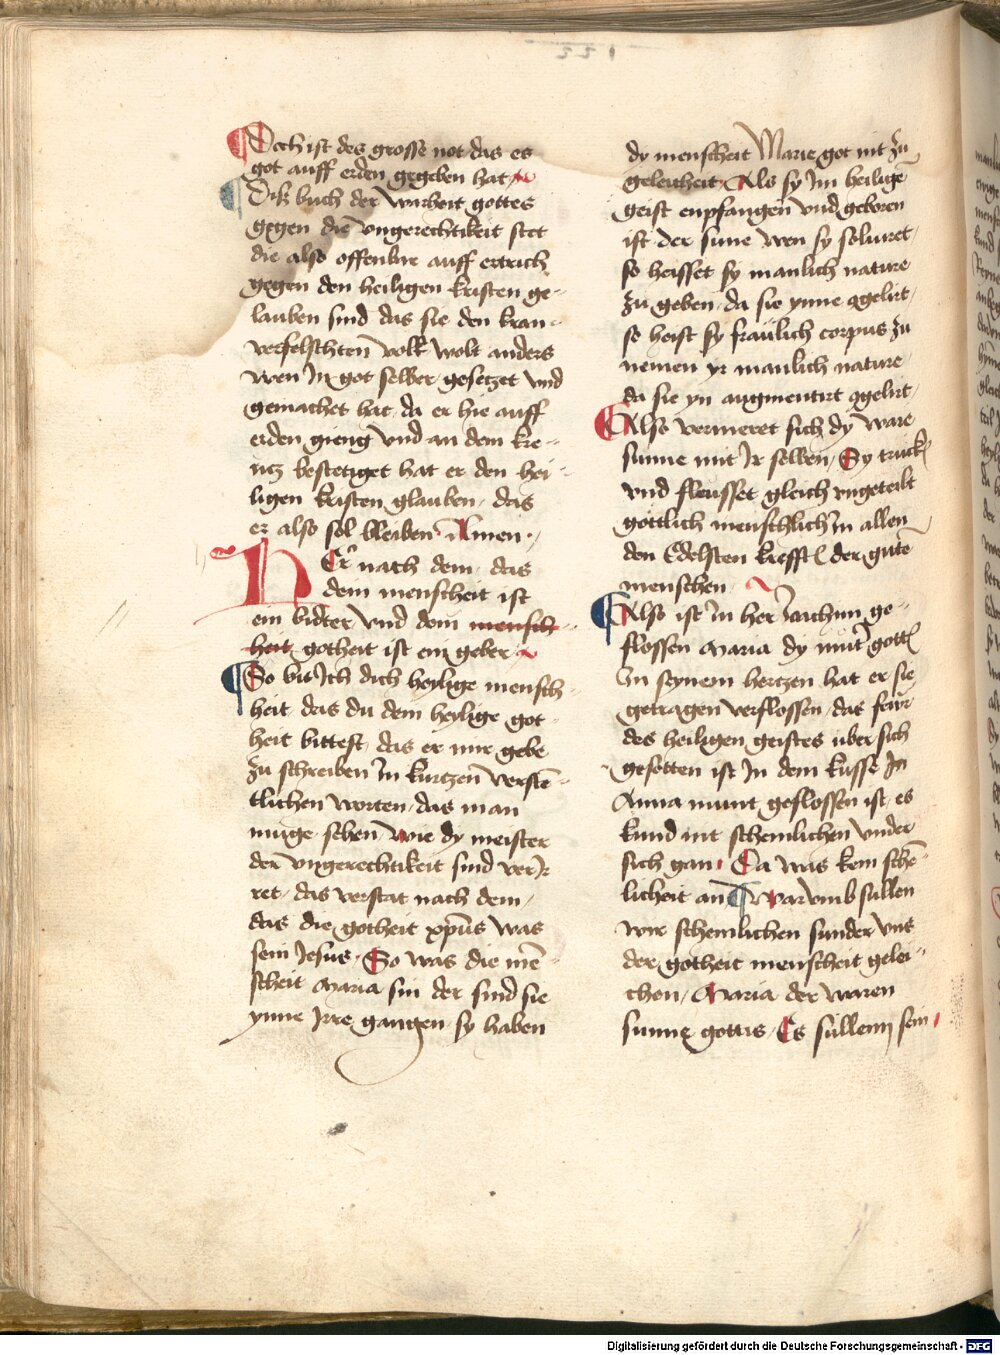 Doch ist des grosse not das es
got auff erden gegeben hat
Diß buch der warheit gottes
gegen die ungerechtikeit stet
die also offenbar auff ertrich
gegen den heiligen kristen ge-
lauben sind das sie den kran-
verfelschten volk wolt anders
wen In got selber gesetzet und
gemachet hat da er hie auff
erden gieng und an dem kre-
utz bestetiget hat er den hei-
ligen kristen glauben das
er also sol bleiben Amen
Her nach dem das
dein menscheit ist
ein bidter und dein mensch-
heit gotheit ist ein geber
So bit Ich dich heylige mensch-
heit das du dein heylige got-
heit bittest das er mir gebe
zu schreiben In kurtzen verstē-
tlichen worten das man
muge sehen wie dy meister
der ungerechtikeit sind verir
ret das verstat nach dem
das die gotheit xp̄us was
sein Jesus So was die mē-
scheit Maria sin der sind sie
ynne Irre gangen sy haben
dy menscheit Marie got nit zu
geleicheit Als sy Im heilige
geist enpfangen und geboren
ist der sune wen sy soluiret
so heisset sy manlich nature
zu geben da sie ynne ꝯgelirt
so heist sy fraülich corpus zu
nemen yr manlich nature
da sie yn augmentirt ꝯgelirt
Also vermeret sich dy ware
sunne mit Ir selben Sy truck
und fleusset gleich ungeteilt
gottlich menschlich In allen
den Edelsten krefften der gutē
menschen
Also ist In her ge-
flossen Maria dy muter gotts
In seynem hertzen hat er sie
getragen verflossen das feür
des heiligen geistes uber sich
gesotten ist In dem kusse In
Anna munt geflossen ist es
kund nit schemlichen under
sich gan Da was kein schē-
licheit an Warumb sullen
wir schemlichen sunder uns
der gotheit menscheit gelei-
chen Maria der waren
sunne gottis Es süllenn sein
Digitalisierung gefördert durch die Deutsche Forschungsgemeinschaft - DFG